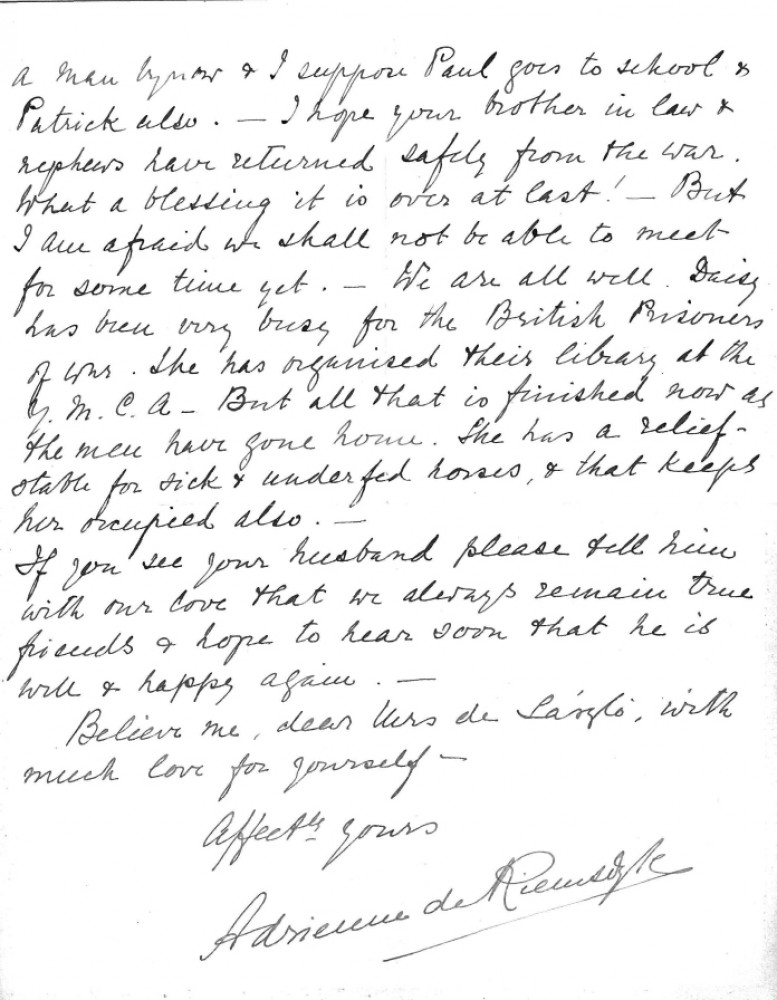 a man by now & I suppose Paul goes to school &
Patrick also. — I hope your brother in law &
nephews have returned safely from the war.
What a blessing it is over at last! — But
I am afraid we shall not be able to meet
for some time yet. — We are all well. Daisy
has been very busy for the British Prisoners
of war. She has organised their library at the
Y. M. C. A — But all that is finished now as
the men have gone home. She has a relief-
stable for sick & underfed horses, & that keeps
her occupied also. —
If you see your husband please tell him
with our love that we always remain true
friends & hope to hear soon that he is
well & happy again. —
Believe me, dear Mrs de László, with
much love for yourself —
Affectly yours
Adrienne de Riemsdyk